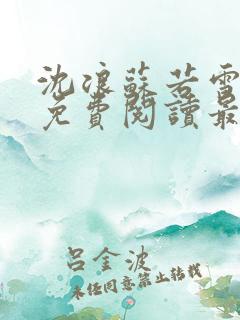 沈浪蘇若雪
免費閱讀最
呂金波
未經同意禁止轉載